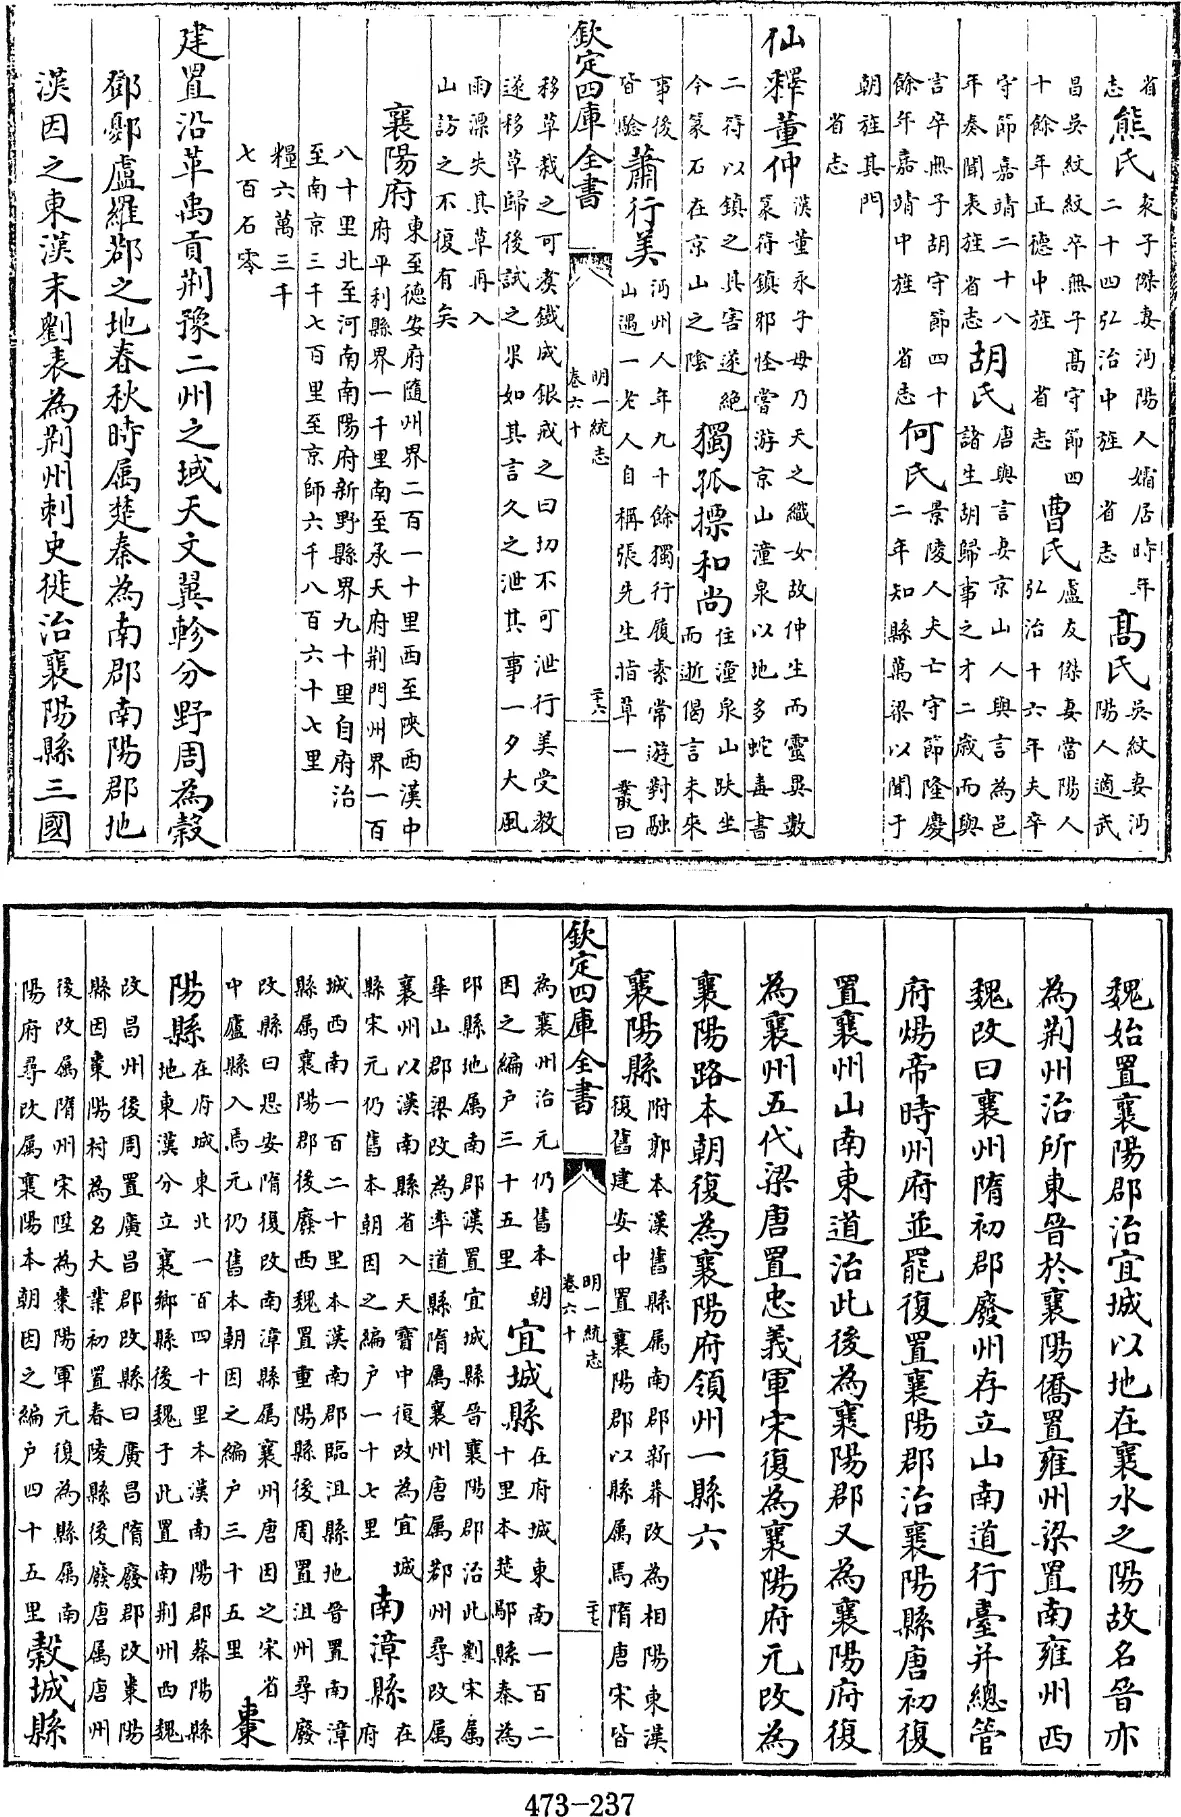 省
志
熊氏
夾子傑妻沔陽人孀居時年
二十四弘治中旌 省志
髙氏
吳紋妻沔
陽人適武
昌吳紋紋卒無子髙守節四
十餘年正德中旌 省志
曹氏
盧友傑妻當陽人
弘治十六年夫卒
守節嘉靖二十八
年奏聞表旌省志
胡氏
唐與言妻京山人與言為邑
諸生胡歸事之才二歲而與
言卒無子胡守節四十
餘年嘉靖中旌 省志
何氏
景陵人夫亡守節隆慶
二年知縣萬梁以聞于
朝旌其門
省志
仙釋董仲
漢董永子母乃天之織女故仲生而靈異數
篆符鎮邪怪嘗游京山潼泉以地多蛇毒書
二符以鎮之其害遂絶
今篆石在京山之陰
獨孤摽和尚
住潼泉山趺坐
而逝偈言未來
事後
皆驗
蕭行美
沔州人年九十餘獨行履素常遊對融
山遇一老人自稱張先生指草一叢曰
欽定四庫全書
明一統志
卷六十
二十六
移草栽之可煑鐵成銀戒之曰切不可泄行美受教
遂移草歸後試之果如其言久之泄其事一夕大風
雨漂失其草再入
山訪之不復有矣
襄陽府
東至德安府隨州界二百一十里西至陜西漢中
府平利縣界一千里南至承天府荆門州界一百
八十里北至河南南陽府新野縣界九十里自府治
至南京三千七百里至京師六千八百六十七里
糧六萬三千
七百石零
建置沿革禹貢荆豫二州之域天文翼軫分野周為糓
鄧鄾盧羅鄀之地春秋時屬楚秦為南郡南陽郡地
漢因之東漢末劉表為荆州刺史徙治襄陽縣三國
魏始置襄陽郡治宜城以地在襄水之陽故名晉亦
為荆州治所東晉於襄陽僑置雍州梁置南雍州西
魏改曰襄州隋初郡廢州存立山南道行臺并總管
府煬帝時州府並罷復置襄陽郡治襄陽縣唐初復
置襄州山南東道治此後為襄陽郡又為襄陽府復
為襄州五代梁唐置忠義軍宋復為襄陽府元改為
襄陽路本朝復為襄陽府領州一縣六
襄陽縣
附郭本漢舊縣属南郡新莽改為相陽東漢
復舊建安中置襄陽郡以縣属焉隋唐宋皆
欽定四庫全書
明一統志
卷六十
二十七
為襄州治元仍舊本朝
因之編户三十五里
宜城縣
在府城東南一百二
十里本楚鄢縣秦為
郢縣地属南郡漢置宜城縣晉襄陽郡治此劉宋属
華山郡梁改為率道縣隋属襄州唐属鄀州尋改属
襄州以漢南縣省入天寶中復改為宜城
縣宋元仍舊本朝因之編户一十七里
南漳縣
在
府
城西南一百二十里本漢南郡臨沮縣地晉置南漳
縣属襄陽郡後廢西魏置重陽縣後周置沮州尋廢
改縣曰思安隋復改南漳縣属襄州唐因之宋省
中廬縣入焉元仍舊本朝因之編户三十五里
棗
陽縣
在府城東北一百四十里本漢南陽郡蔡陽縣
地東漢分立襄鄉縣後魏于此置南荆州西魏
改昌州後周置廣昌郡改縣曰廣昌隋廢郡改棗陽
縣因棗陽村為名大業初置舂陵縣後廢唐属唐州
後改属隋州宋陞為棗陽軍元復為縣属南
陽府尋改属襄陽本朝因之編户四十五里
糓城縣
473-237